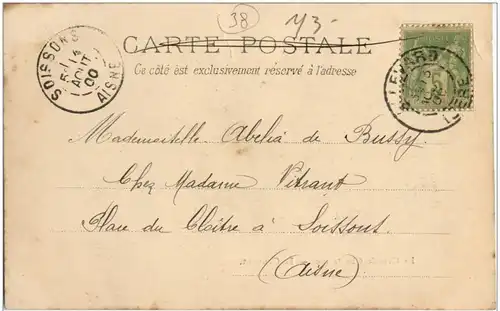 38
CARTE POSTALE
Ce côté est exclusivement réservé à l'adresse
SOISSONS
AOUT
00
AISNE
ISERE
Mademoiselle Abelia de Bussy.
Chez Madame Vitrant
Place du Cloître à Soissons.
(Aisne)